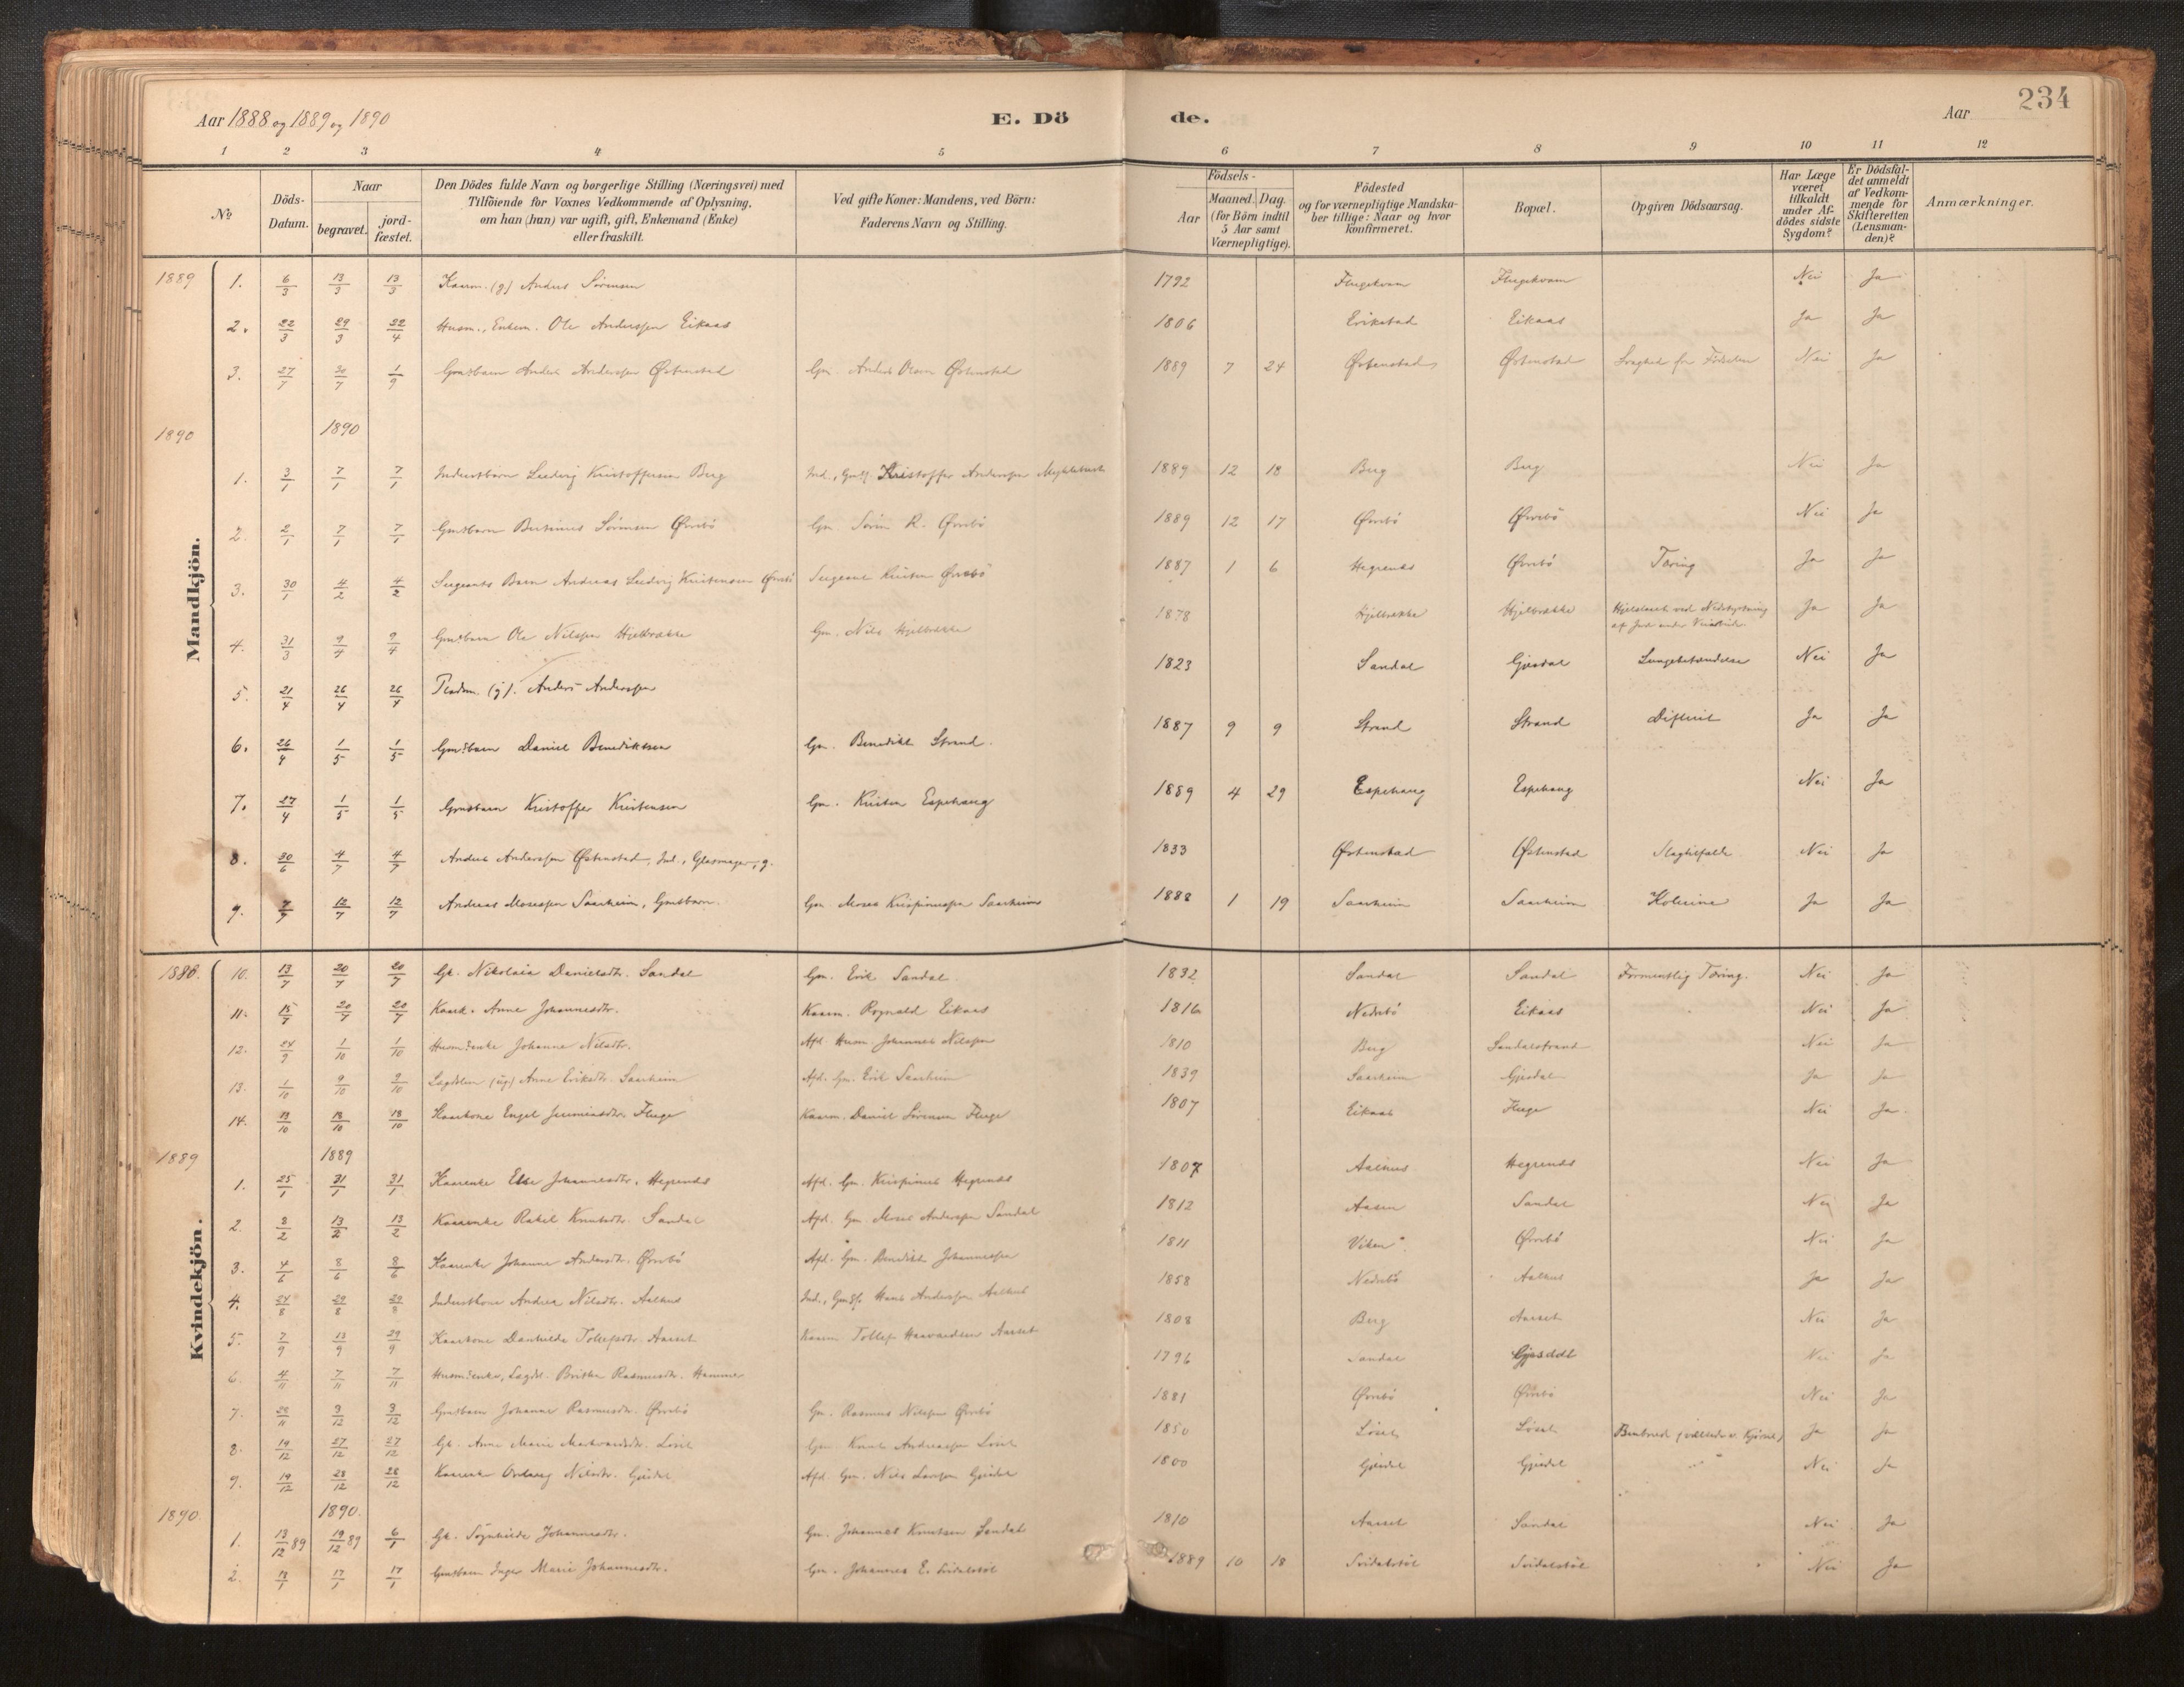 Aar 1888 og 1889 og 1890 E. Dö de. Aar 234
1 2 3 4 5 6 7 8 9 10 11 12
No Döds-Datum. Naar begravet. jordfæstet. Den Dödes fulde Navn og borgerlige Stilling (Næringsvei) med Tilföiende for Voxnes Vedkommende af Oplysning, om han (hun) var ugift, gift, Enkemand (Enke) eller fraskilt. Ved gifte Koner: Mandens, ved Börn: Faderens Navn og Stilling. Födsels- Aar Maaned. Dag. (for Börn indtil 5 Aar samt Værnepligtige). Födested og for værnepligtige Mandskaber tillige: Naar og hvor konfirmeret. Bopæl. Opgiven Dödsaarsag. Har Læge været tilkaldt under Afdödes sidste Sygdom? Er Dödsfaldet anmeldt af Vedkommende for Skifteretten (Lensmanden)? Anmærkninger.
Mandkjön.
1889 1. 6/3 13/3 13/3 Kaarm. (g) Anders Sörensen 1792 Flugekvam Flugekvam Nei Ja
2. 22/3 29/3 22/4 Husm., Enkem. Ole Anderssen Eikaas 1806 Erikstad Eikaas Ja Ja
3. 27/7 30/7 1/9 Gmdsbarn Anders Anderssen Østenstad Gm. Anders Olsen Østenstad 1889 7 24 Østenstad Østenstad Svaghed fra Födselen Nei Ja
1890 1890
1. 3/1 7/1 7/1 Inderstbarn Ludvig Kristoffersen Berg Ind., Gmdss. Kristoffer Anderssen Myklebust 1889 12 18 Berg Berg Nei Ja
2. 2/1 7/1 7/1 Gmdsbarn Bertinius Sörensen Ørebö Gm. Sören R. Ørebö 1889 12 17 Ørebö Ørebö Nei Ja
3. 30/1 4/2 4/2 Sergeants Barn Andreas Ludvig Kristensen Ørebö Sergeant Kristen Ørebö 1887 1 6 Hegrenes Ørebö Tæring Ja Ja
4. 31/3 9/4 9/4 Gmdsbarn Ole Nilssen Hjelbrække Gm. Nils Hjelbrække 1878 Hjelbrække Hjelbrække ved Nedstyrtning af Jord under Ja Ja
5. 21/4 26/4 26/4 (g). Anders Anderssen 1823 Sandal Gjesdal Lungebetændelse Nei Ja
6. 26/4 1/5 1/5 Gmdsbarn Daniel Benediktsen Gm. Benedikt Strand. 1887 9 9 Strand Strand Difterit Ja Ja
7. 27/4 1/5 1/5 Gmdsbarn Kristoffer Kristensen Gm. Kristen Espehaug 1889 4 29 Espehaug Espehaug Nei Ja
8. 30/6 4/7 4/7 Anders Anderssen Østenstad, Ind., Glasmager, g. 1833 Østenstad Østenstad Slagtilfælde Nei Ja
9. 7/7 12/7 12/7 Andreas Mosessen Saarheim, Gmdsbarn. Gm. Moses Krispinussen Saarheim 1888 1 19 Saarheim Saarheim Kolerine Ja Ja
Kvindekjön.
1888. 10. 13/7 20/7 20/7 Gk. Nikolaia Danielsdtr. Sandal Gm. Erik Sandal 1832 Sandal Sandal Formentlig Tæring. Nei Ja
11. 15/7 20/7 20/7 Kaark. Anne Johannesdtr. Kaarm. Rognald Eikaas 1816 Nedrebö Eikaas Nei Ja
12. 24/9 1/10 1/10 Husmdsenke Johanne Nilsdtr. Afd. Husm. Johannes Nilssen 1810 Berg Sandalstrand Nei Ja
13. 1/10 9/10 9/10 Lægdslem (ug.) Anne Eriksdtr. Saarheim Afd. Gm. Erik Saarheim 1839 Saarheim Gjesdal Ja Ja
14. 13/10 18/10 18/10 Kaarkone Engel Jeremiasdtr. Fluge Kaarm. Daniel Sörensen Fluge 1807 Eikaas Fluge Nei Ja
1889 1889
1. 25/1 31/1 31/1 Kaarenke Else Johannesdtr. Hegrenes Afd. Gm. Krispinus Hegrenes 1807 Aalhus Hegrenes Nei Ja
2. 8/2 13/2 13/2 Kaarenke Rakel Knutsdtr. Sandal Afd. Gm. Moses Anderssen Sandal 1812 Aasen Sandal Nei Ja
3. 4/6 8/6 8/6 Kaarenke Johanne Andersdtr. Ørebö Afd. Gm. Benedikt Johannessen 1811 Viken Ørebö Nei Ja
4. 24/8 29/8 29/8 Inderstkone Andrea Nilsdtr. Aalhus Ind., Gmdss. Hans Anderssen Aalhus 1858 Nedrebö Aalhus Ja Ja
5. 7/9 13/9 29/9 Kaarkone Danhilde Tollefsdtr. Aarset Kaarm. Tollef Haavardsen Aarset 1808 Berg Aarset Nei Ja
6. 4/11 7/11 7/11 Husmdsenke, Lægdsl. Brithe Rasmusdtr. Hammer 1796 Sandal Gjesdal Nei Ja
7. 28/11 3/12 3/12 Gmdsbarn Johanne Rasmusdtr. Ørebö Gm. Rasmus Nilssen Ørebö 1881 Ørebö Ørebö Nei Ja
8. 19/12 27/12 27/12 Gk. Anne Marie Markvardsdtr. Löset Gm. Knut Andreassen Löset 1850 Löset Löset Benbrud Ja Ja
9. 19/12 28/12 28/12 Kaarenke Nilsdtr. Gjesdal Afd. Gm. Nils Larssen Gjesdal 1800 Gjesdal Gjesdal Nei Ja
1890. 1890.
1. 13/12 89 19/12 89 6/1 Gk. Johannesdtr. Gm. Johannes Knutsen Sandal 1810 Aarset Sandal Nei Ja
2. 13/1 17/1 17/1 Gmdsbarn Inger Marie Johannesdtr. Gm. Johannes E. Svidalstöl 1889 10 18 Svidalstöl Svidalstöl Nei Ja